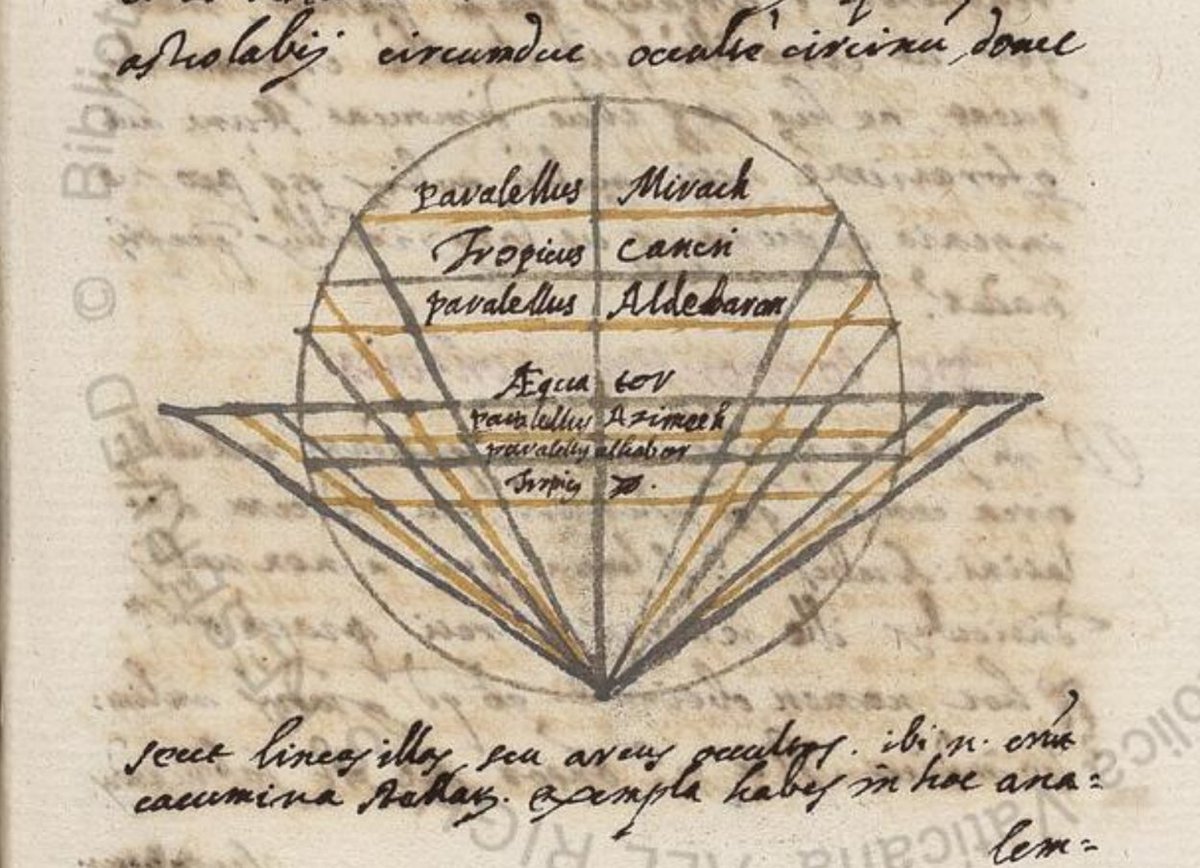 astrolabij circumduc occultè circinũ, donec
paralellus Mirach
Tropicus Cancri
paralellus Aldebaran
Æqua tor
paralellus Azimech
paralellus alhabor
Tropicus ♑.
secet lineas illas seu arcus occultos. ibi n. erũt
cacumina stellarum. exempla habes in hoc ana=
lem=